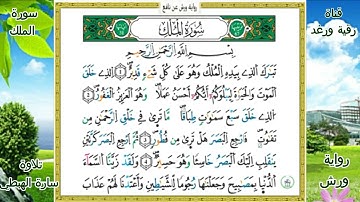 رواية ورش عن نافع
سورة
الملك
قناة
رقية ورغد
سُورَةُ الْمُلْكِ
بِسْمِ اللَّهِ الرَّحْمَٰنِ الرَّحِيمِ
تَبَٰرَكَ اَ۬لذِے بِيَدِهِ اِ۬لْمُلْكُ وَهُوَ عَلَىٰ كُلِّ شَےْءٖ قَدِيرٌۖ اِ۬لذِے خَلَقَ
اَ۬لْمَوْتَ وَالْحَيَوٰةَ لِيَبْلُوَكُمُۥٓ أَيُّكُمُۥٓ أَحْسَنُ عَمَلاٗۖ وَهُوَ اَ۬لْعَزِيزُ اُ۬لْغَفُورُۖ اُ۬لذِے
خَلَقَ سَبْعَ سَمَٰوَٰتٖ طِبَاقاٗۖ مَّا تَر۪ىٰ فِے خَلْقِ اِ۬لرَّحْمَٰنِ مِن
تَفَٰوُتٖۖ فَارْجِعِ اِ۬لْبَصَرَ هَلْ تَر۪ىٰ مِن فُطُورٖۖ ثُمَّ اَ۪رْجِعِ اِ۬لْبَصَرَ كَرَّتَيْنِ
يَنقَلِبِ اِلَيْكَ اَ۬لْبَصَرُ خَاسِئاٗ وَهُوَ حَسِيرٞۖ وَلَقَدْ زَيَّنَّا اَ۬لسَّمَآءَ
اَ۬لدُّنْي۪ا بِمَصَٰبِيحَ وَجَعَلْنَٰهَا رُجُوماٗ لِّلشَّيَٰطِينِۖ وَأَعْتَدْنَا لَهُمْ عَذَابَ
تلاوة
سارة الهبطي
رواية
ورش